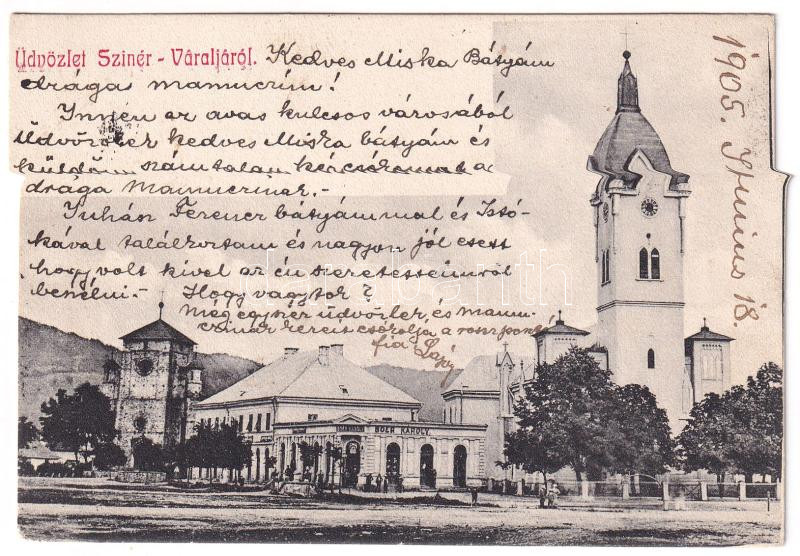 Üdvözlet Szinér-Váraljáról. Kedves Miska Bátyám
drága mamucrim!
Innen az avas kulcsos városából
üdvözöllek kedves Miska bátyám és
küldöm számtalan kézcsókomat a
drága Mamucrinak.-
Juhász Ferencz bátyámmal és Istó-
kával találkoztam és nagyon jól esett
hogy volt kivel az én szeretetteimről
beszélni.- Hogy vagytok?
Még egyszer üdvözöllek és mamu-
crinak kezeit csókolja a rossz
fia
1905. Junius 18.
BOÉR KÁROLY
darabanth